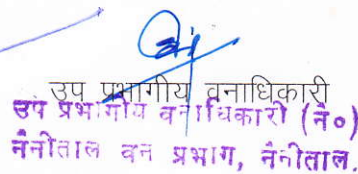 उप प्रभागीय वनाधिकारी
उप प्रभागीय वनाधिकारी (नै०)
नैनीताल वन प्रभाग, नैनीताल.